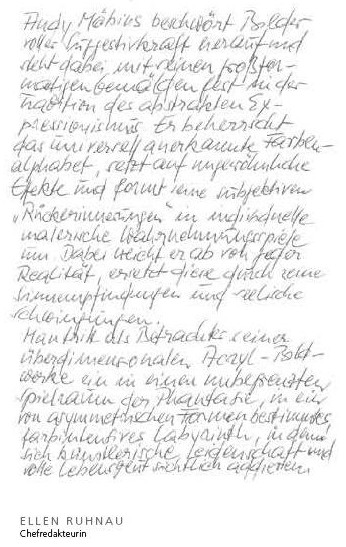 Andy Möbius beschwört Bilder
voller Suggestivkraft herauf und
steht dabei mit seinen großfor-
matigen Gemälden fest in der
Tradition des abstrakten Ex-
pressionismus. Er beherrscht
das universell anerkannte Farben-
alphabet, setzt auf ungewöhnliche
Effekte und formt seine subjektiven
„Rückerinnerungen" in individuelle
malerische Wahrnehmungsspiele
um. Dabei weicht er ab von jeder
Realität, ersetzt diese durch reine
Sinnempfindungen und seelische
Schwingungen.
Man tritt als Betrachter seiner
überdimensionalen Acryl-Bild-
werke ein in einen unbegrenzten
Spielraum der Phantasie, in ein
von asymmetrischen Formen bestimmtes
farbintensives Labyrinth, in dem
sich künstlerische Leidenschaft und
volle Lebensglut sichtlich addieren.
ELLEN RUHNAU
Chefredakteurin